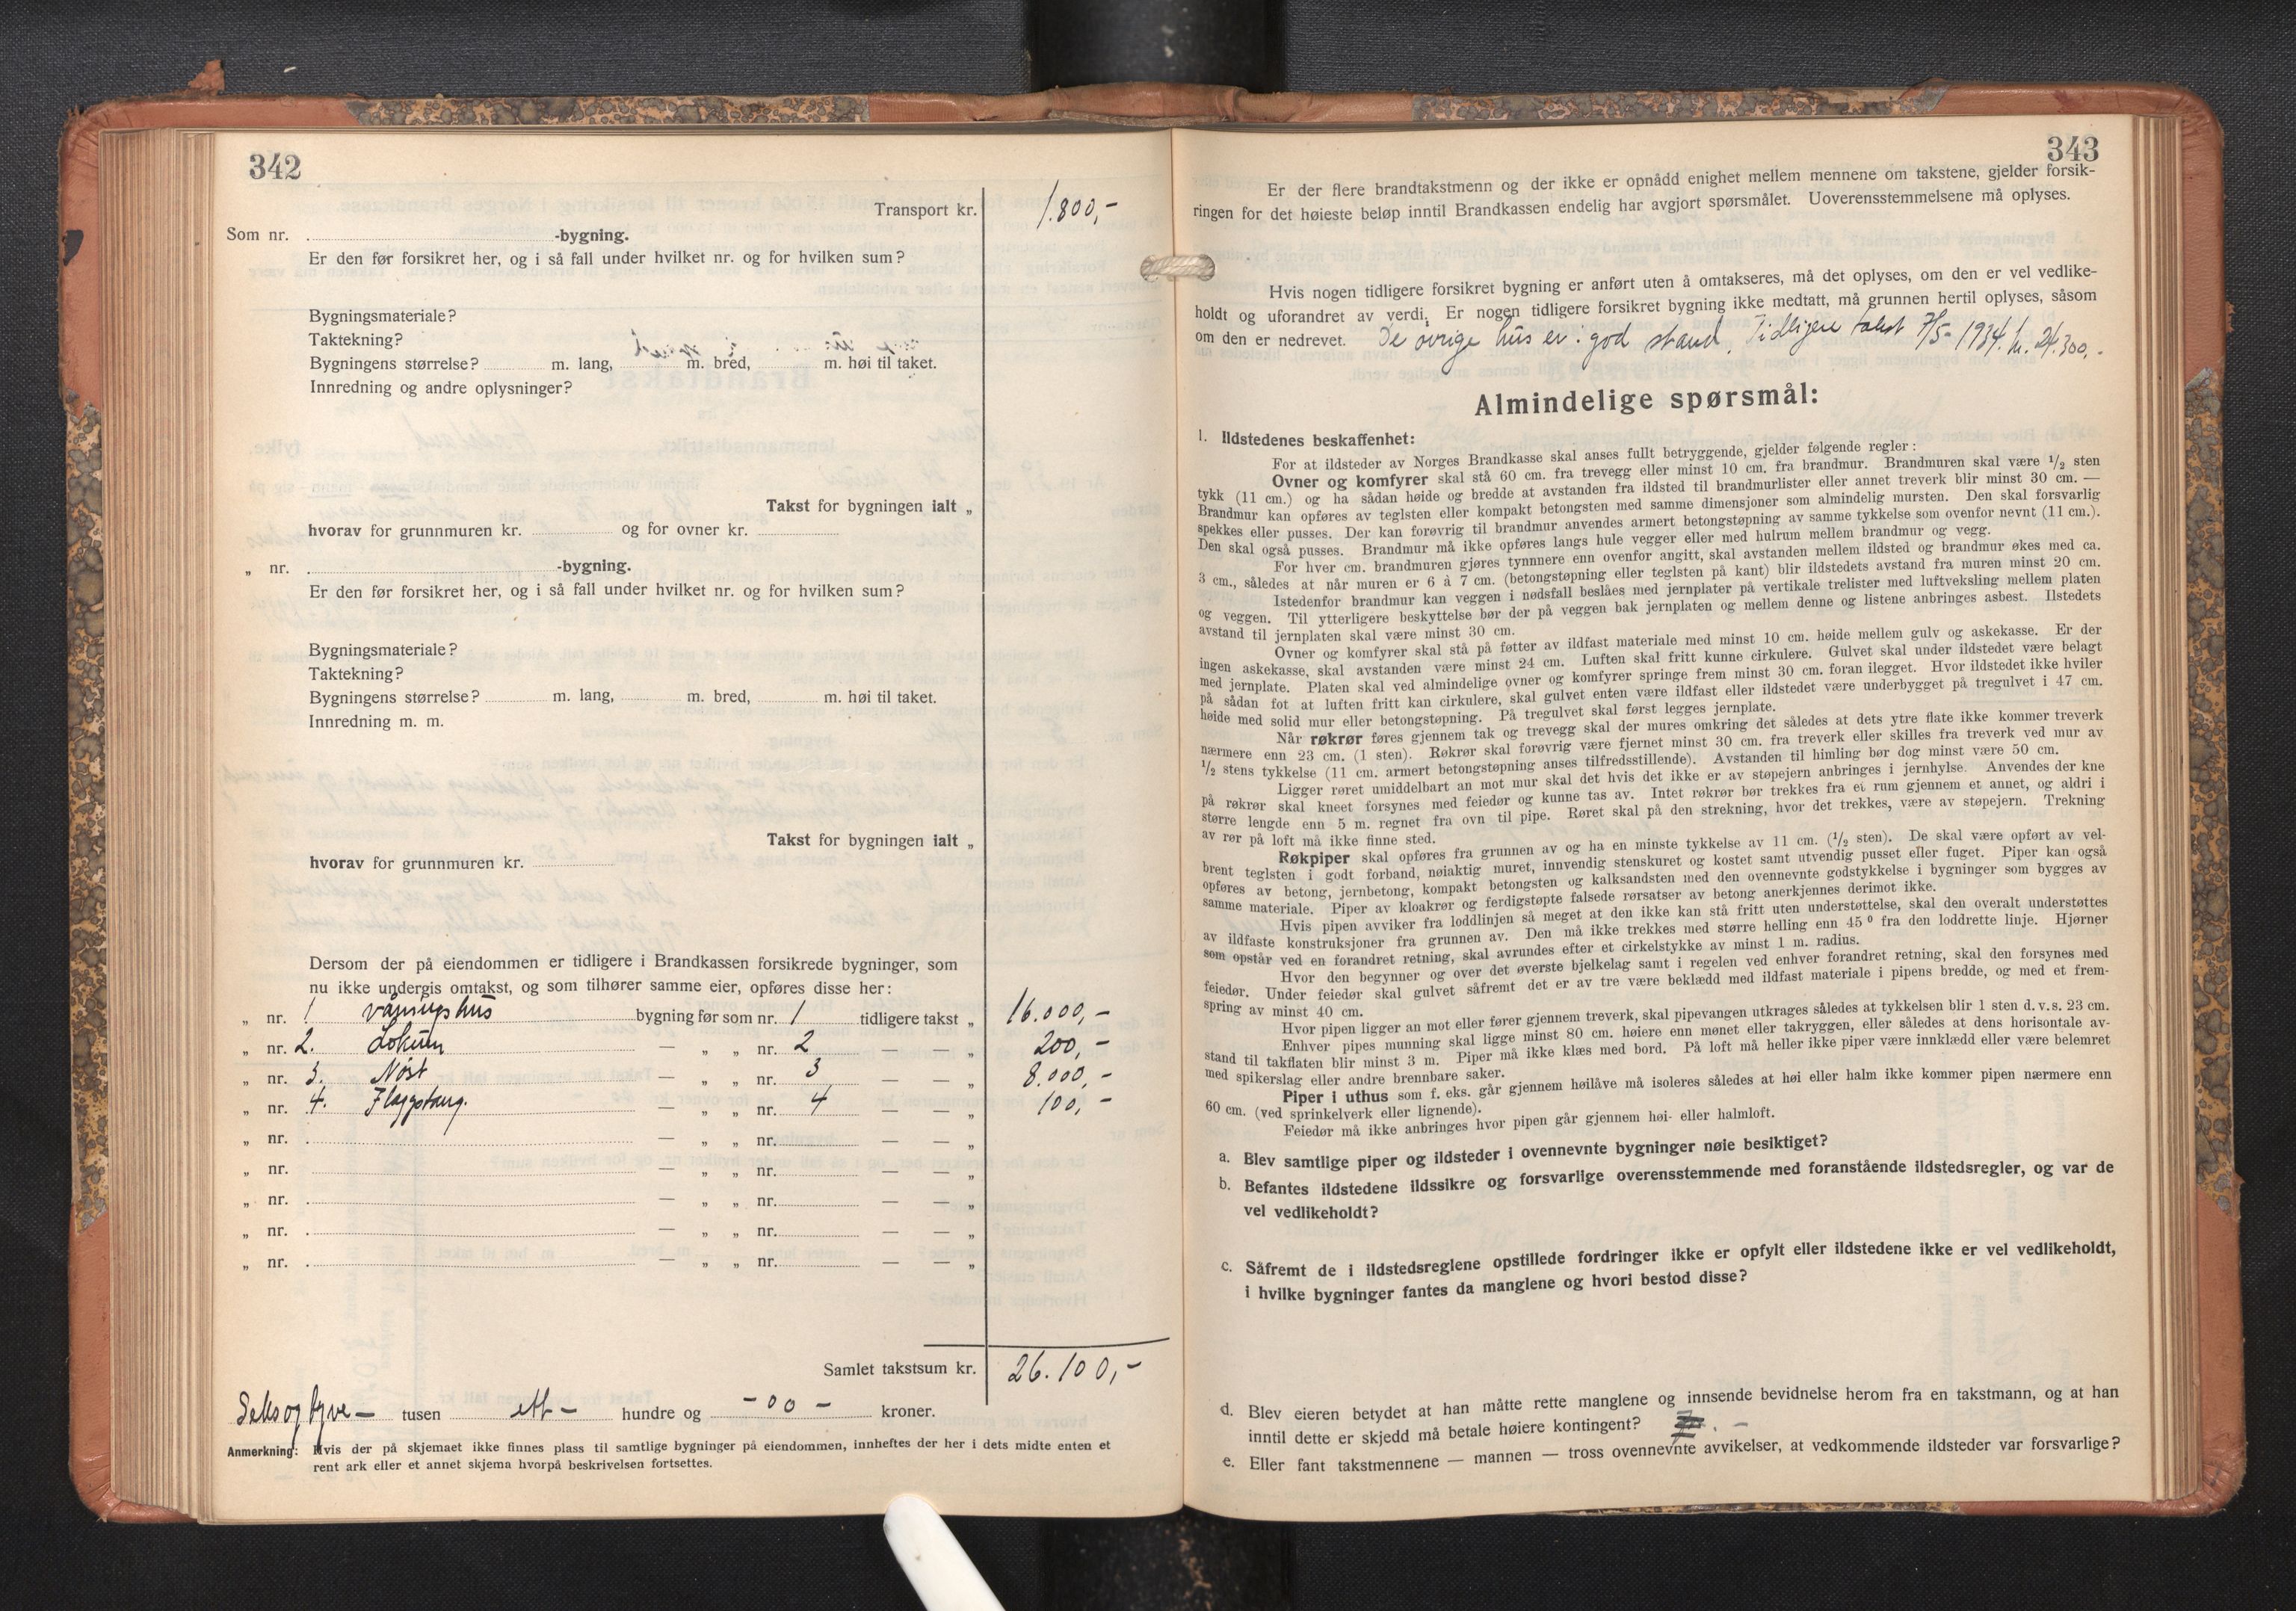 342
Transport kr. 1.800,-
Som nr. -bygning.
Er den før forsikret her, og i så fall under hvilket nr. og for hvilken sum?
Bygningsmateriale?
Taktekning?
Bygningens størrelse? m. lang, m. bred, m. høi til taket.
Innredning og andre oplysninger?
Takst for bygningen ialt „
hvorav for grunnmuren kr. og for ovner kr.
„ nr. -bygning.
Er den før forsikret her, og i så fall under hvilket nr. og for hvilken sum?
Bygningsmateriale?
Taktekning?
Bygningens størrelse? m. lang, m. bred, m. høi til taket.
Innredning m. m.
Takst for bygningen ialt „
hvorav for grunnmuren kr.
Dersom der på eiendommen er tidligere i Brandkassen forsikrede bygninger, som
nu ikke undergis omtakst, og som tilhører samme eier, opføres disse her:
„ nr. 1 våningshus bygning før som nr. 1 tidligere takst „ 16.000,-
„ nr. 2. Lokum — „ „ nr. 2 — — „ 200,-
„ nr. 3. Nøst — „ „ nr. 3 — — „ 8.000,-
„ nr. 4. Flaggstang. — „ „ nr. 4 — — „ 100,-
„ nr. — „ „ nr. — — „
„ nr. — „ „ nr. — — „
„ nr. — „ „ nr. — — „
„ nr. — „ „ nr. — — „
„ nr. — „ „ nr. — — „
Samlet takstsum kr. 26.100,-
Seksogtyve — tusen ett - hundre og - 00 - kroner.
Anmerkning: Hvis der på skjemaet ikke finnes plass til samtlige bygninger på eiendommen, innheftes der her i dets midte enten et
rent ark eller et annet skjema hvorpå beskrivelsen fortsettes.
343
Er der flere brandtakstmenn og der ikke er opnådd enighet mellem mennene om takstene, gjelder forsik-
ringen for det høieste beløp inntil Brandkassen endelig har avgjort spørsmålet. Uoverensstemmelsene må oplyses.
Hvis nogen tidligere forsikret bygning er anført uten å omtakseres, må det oplyses, om den er vel vedlike-
holdt og uforandret av verdi. Er nogen tidligere forsikret bygning ikke medtatt, må grunnen hertil oplyses, såsom
om den er nedrevet. De øvrige hus er i god stand. Tidligere takst 7/5-1934. kr. 24.300,-
Almindelige spørsmål:
1. Ildstedenes beskaffenhet:
For at ildsteder av Norges Brandkasse skal anses fullt betryggende, gjelder følgende regler:
Ovner og komfyrer skal stå 60 cm. fra trevegg eller minst 10 cm. fra brandmur. Brandmuren skal være 1/2 sten
tykk (11 cm.) og ha sådan høide og bredde at avstanden fra ildsted til brandmurlister eller annet treverk blir minst 30 cm. —
Brandmur kan opføres av teglsten eller kompakt betongsten med samme dimensjoner som almindelig mursten. Den skal forsvarlig
spekkes eller pusses. Der kan forøvrig til brandmur anvendes armert betongstøpning av samme tykkelse som ovenfor nevnt (11 cm.).
Den skal også pusses. Brandmur må ikke opføres langs hule vegger eller med hulrum mellem brandmur og vegg.
For hver cm. brandmuren gjøres tynnnere enn ovenfor angitt, skal avstanden mellem ildsted og brandmur økes med ca.
3 cm., således at når muren er 6 à 7 cm. (betongstøpning eller teglsten på kant) blir ildstedets avstand fra muren minst 20 cm.
Istedenfor brandmur kan veggen i nødsfall beslåes med jernplater på vertikale trelister med luftveksling mellem platen
og veggen. Til ytterligere beskyttelse bør der på veggen bak jernplaten og mellem denne og listene anbringes asbest. Ilstedets
avstand til jernplaten skal være minst 30 cm.
Ovner og komfyrer skal stå på føtter av ildfast materiale med minst 10 cm. høide mellem gulv og askekasse. Er der
ingen askekasse, skal avstanden være minst 24 cm. Luften skal fritt kunne cirkulere. Gulvet skal under ildstedet være belagt
med jernplate. Platen skal ved almindelige ovner og komfyrer springe frem minst 30 cm. foran ilegget. Hvor ildstedet ikke hviler
på sådan fot at luften fritt kan cirkulere, skal gulvet enten være ildfast eller ildstedet være underbygget på tregulvet i 47 cm.
høide med solid mur eller betongstøpning. På tregulvet skal først legges jernplate.
Når røkrør føres gjennem tak og trevegg skal der mures omkring det således at dets ytre flate ikke kommer treverk
nærmere enn 23 cm. (1 sten). Røkrør skal forøvrig være fjernet minst 30 cm. fra treverk eller skilles fra treverk ved mur av
1/2 stens tykkelse (11 cm. armert betongstøpning anses tilfredsstillende). Avstanden til himling bør dog minst være 50 cm.
Ligger røret umiddelbart an mot mur skal det hvis det ikke er av støpejern anbringes i jernhylse. Anvendes der kne
på røkrør skal kneet forsynes med feiedør og kunne tas av. Intet røkrør bør trekkes fra et rum gjennem et annet, og aldri i
større lengde enn 5 m. regnet fra ovn til pipe. Røret skal på den strekning, hvor det trekkes, være av støpejern. Trekning
av rør på loft må ikke finne sted.
Røkpiper skal opføres fra grunnen av og ha en minste tykkelse av 11 cm. (1/2 sten). De skal være opført av vel-
brent teglsten i godt forband, nøiaktig muret, innvendig stenskuret og kostet samt utvendig pusset eller fuget. Piper kan også
opføres av betong, jernbetong, kompakt betongsten og kalksandsten med den ovennevnte godstykkelse i bygninger som bygges av
samme materiale. Piper av kloakrør og ferdigstøpte falsede rørsatser av betong anerkjennes derimot ikke.
Hvis pipen avviker fra loddlinjen så meget at den ikke kan stå fritt uten understøttelse, skal den overalt understøttes
av ildfaste konstruksjoner fra grunnen av. Den må ikke trekkes med større helling enn 45 ° fra den loddrette linje. Hjørner
som opstår ved en forandret retning, skal avrundes efter et cirkelstykke av minst 1 m. radius.
Hvor den begynner og over det øverste bjelkelag samt i regelen ved enhver forandret retning, skal den forsynes med
feiedør. Under feiedør skal gulvet såfremt det er av tre være beklædd med ildfast materiale i pipens bredde, og med et frem-
spring av minst 40 cm.
Hvor pipen ligger an mot eller fører gjennem treverk, skal pipevangen utkrages således at tykkelsen blir 1 sten d. v. s. 23 cm.
Enhver pipes munning skal ligge minst 80 cm. høiere enn mønet eller takryggen, eller således at dens horisontale av-
stand til takflaten blir minst 3 m. Piper må ikke klæs med bord. På loft må heller ikke piper være innklædd eller være belemret
med spikerslag eller andre brennbare saker.
Piper i uthus som f. eks. går gjennem høilåve må isoleres således at høi eller halm ikke kommer pipen nærmere enn
60 cm. (ved sprinkelverk eller lignende).
Feiedør må ikke anbringes hvor pipen går gjennem høi- eller halmloft.
a. Blev samtlige piper og ildsteder i ovennevnte bygninger nøie besiktiget?
b. Befantes ildstedene ildssikre og forsvarlige overensstemmende med foranstående ildstedsregler, og var de
vel vedlikeholdt?
c. Såfremt de i ildstedsreglene opstillede fordringer ikke er opfylt eller ildstedene ikke er vel vedlikeholdt,
i hvilke bygninger fantes da manglene og hvori bestod disse?
d. Blev eieren betydet at han måtte rette manglene og innsende bevidnelse herom fra en takstmann, og at han
inntil dette er skjedd må betale høiere kontingent?
e. Eller fant takstmennene — mannen — tross ovennevnte avvikelser, at vedkommende ildsteder var forsvarlige?